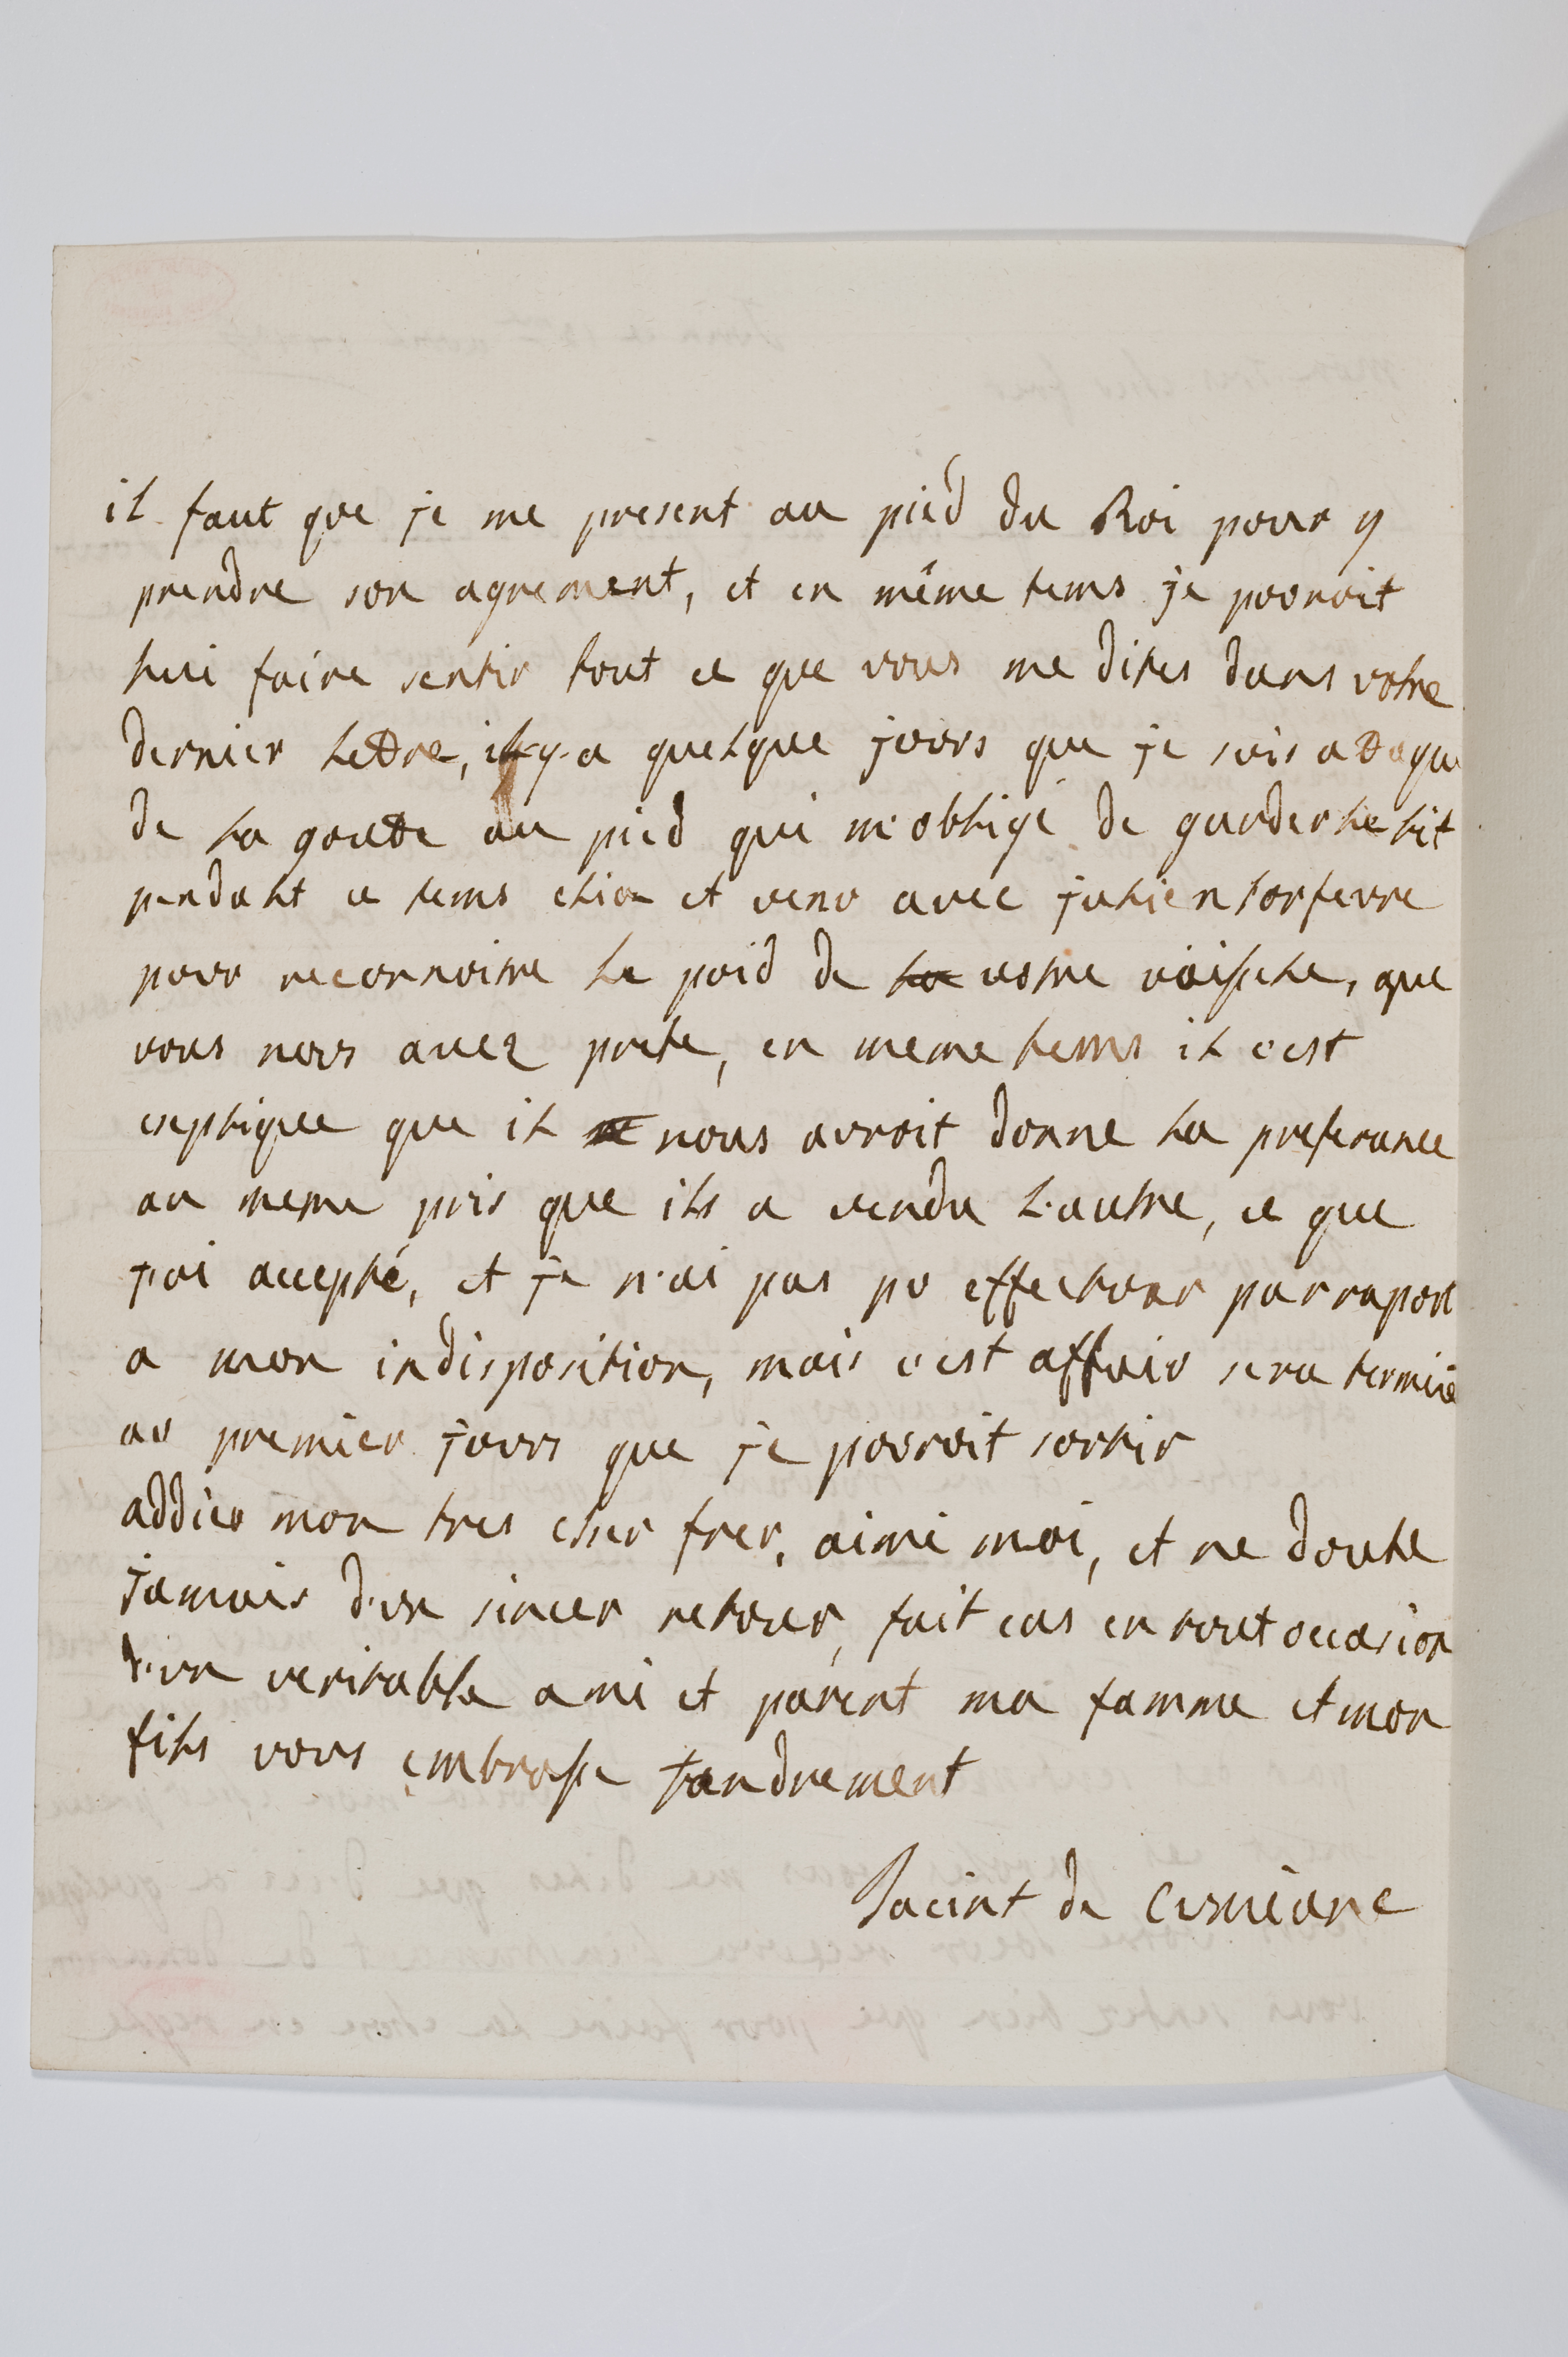 il faut que je me present au pied du Roi pour y
prendre son agrement, et en même tems je pouroit
lui faire sentir tout ce que vous me dites dans votre
dernier lettre, il y a quelque jours que je suis attaque
de la goutte au pied qui m'obligé de garder le lit
pendant ce tems et venu avec julien l'orfevre
pour reconnoitre le poid de la votre vaisselle, que
vous nous avez prete, en meme tems il c'est
expliquee que il ne nous avroit donne la preferance
au meme pris que ils a vendu l'autre, ce que
j'ai accepté, et je n'ai pas pu effectuer par raport
a mon indisposition, mais c'est affair sera terminé
au premier jours que je pouroit sortir
addieu mon tres cher frer, aimé moi, et ne doute
jamais d'un sincer retour, fait cas en tout occasion
d'un veritable ami et parent ma famme et mon
fils vous embrasse tandrement
Jacint de Cumiane